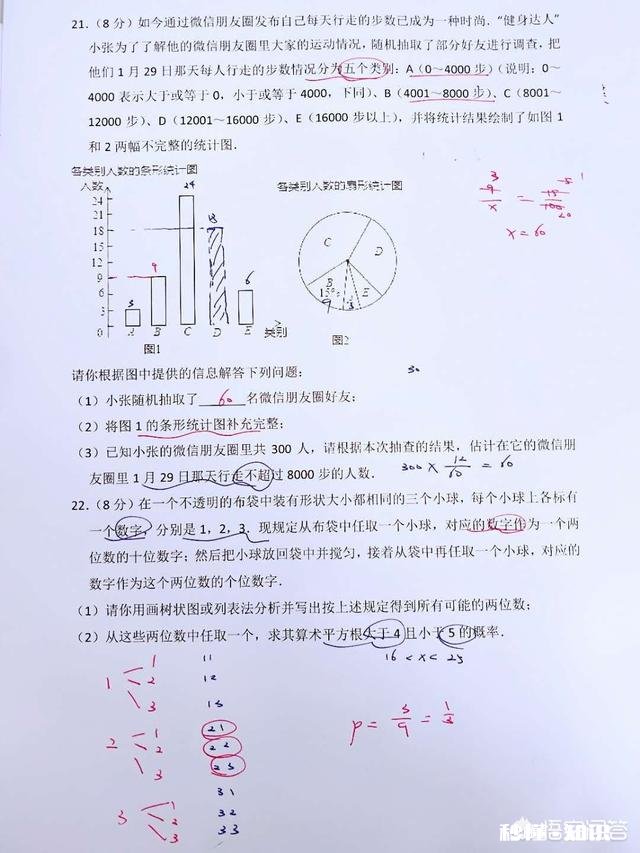 21.（8 分）如今通过微信朋友圈发布自己每天行走的步数已成为一种时尚．“健身达人”
小张为了了解他的微信朋友圈里大家的运动情况，随机抽取了部分好友进行调查，把
他们 1 月 29 日那天每人行走的步数情况分为五个类别：A（0～4000 步）(说明：0～
4000 表示大于或等于 0，小于或等于 4000，下同)、B（4001～8000 步）、C（8001～
12000 步）、D（12001～16000 步）、E（16000 步以上），并将统计结果绘制了如图 1
和 2 两幅不完整的统计图．
各类别人数的条形统计图
各类别人数的扇形统计图
人数
24
24
21
18
18
15
12
9
9
6
6
3
3
0
A B C D E 类别
图1
C
D
B
E
图2
x = 60
请你根据图中提供的信息解答下列问题：
30
（1）小张随机抽取了 60 名微信朋友圈好友；
（2）将图 1 的条形统计图补充完整；
（3）已知小张的微信朋友圈里共 300 人，请根据本次抽查的结果，估计在它的微信朋
友圈里 1 月 29 日那天行走不超过 8000 步的人数．
300 × 12/60 = 60
22.（8 分）在一个不透明的布袋中装有形状大小都相同的三个小球，每个小球上各标有
一个数字，分别是 1，2，3．现规定从布袋中任取一个小球，对应的数字作为一个两
位数的十位数字；然后把小球放回袋中并搅匀，接着从袋中再任取一个小球，对应的
数字作为这个两位数的个位数字．
（1）请你用画树状图或列表法分析并写出按上述规定得到所有可能的两位数；
（2）从这些两位数中任取一个，求其算术平方根大于 4 且小于 5 的概率．
16 < x < 25
1 1 11
2 12
3 13
2 1 21
2 22
3 23
3 1 31
2 32
3 33
P = 3/9 = 1/3